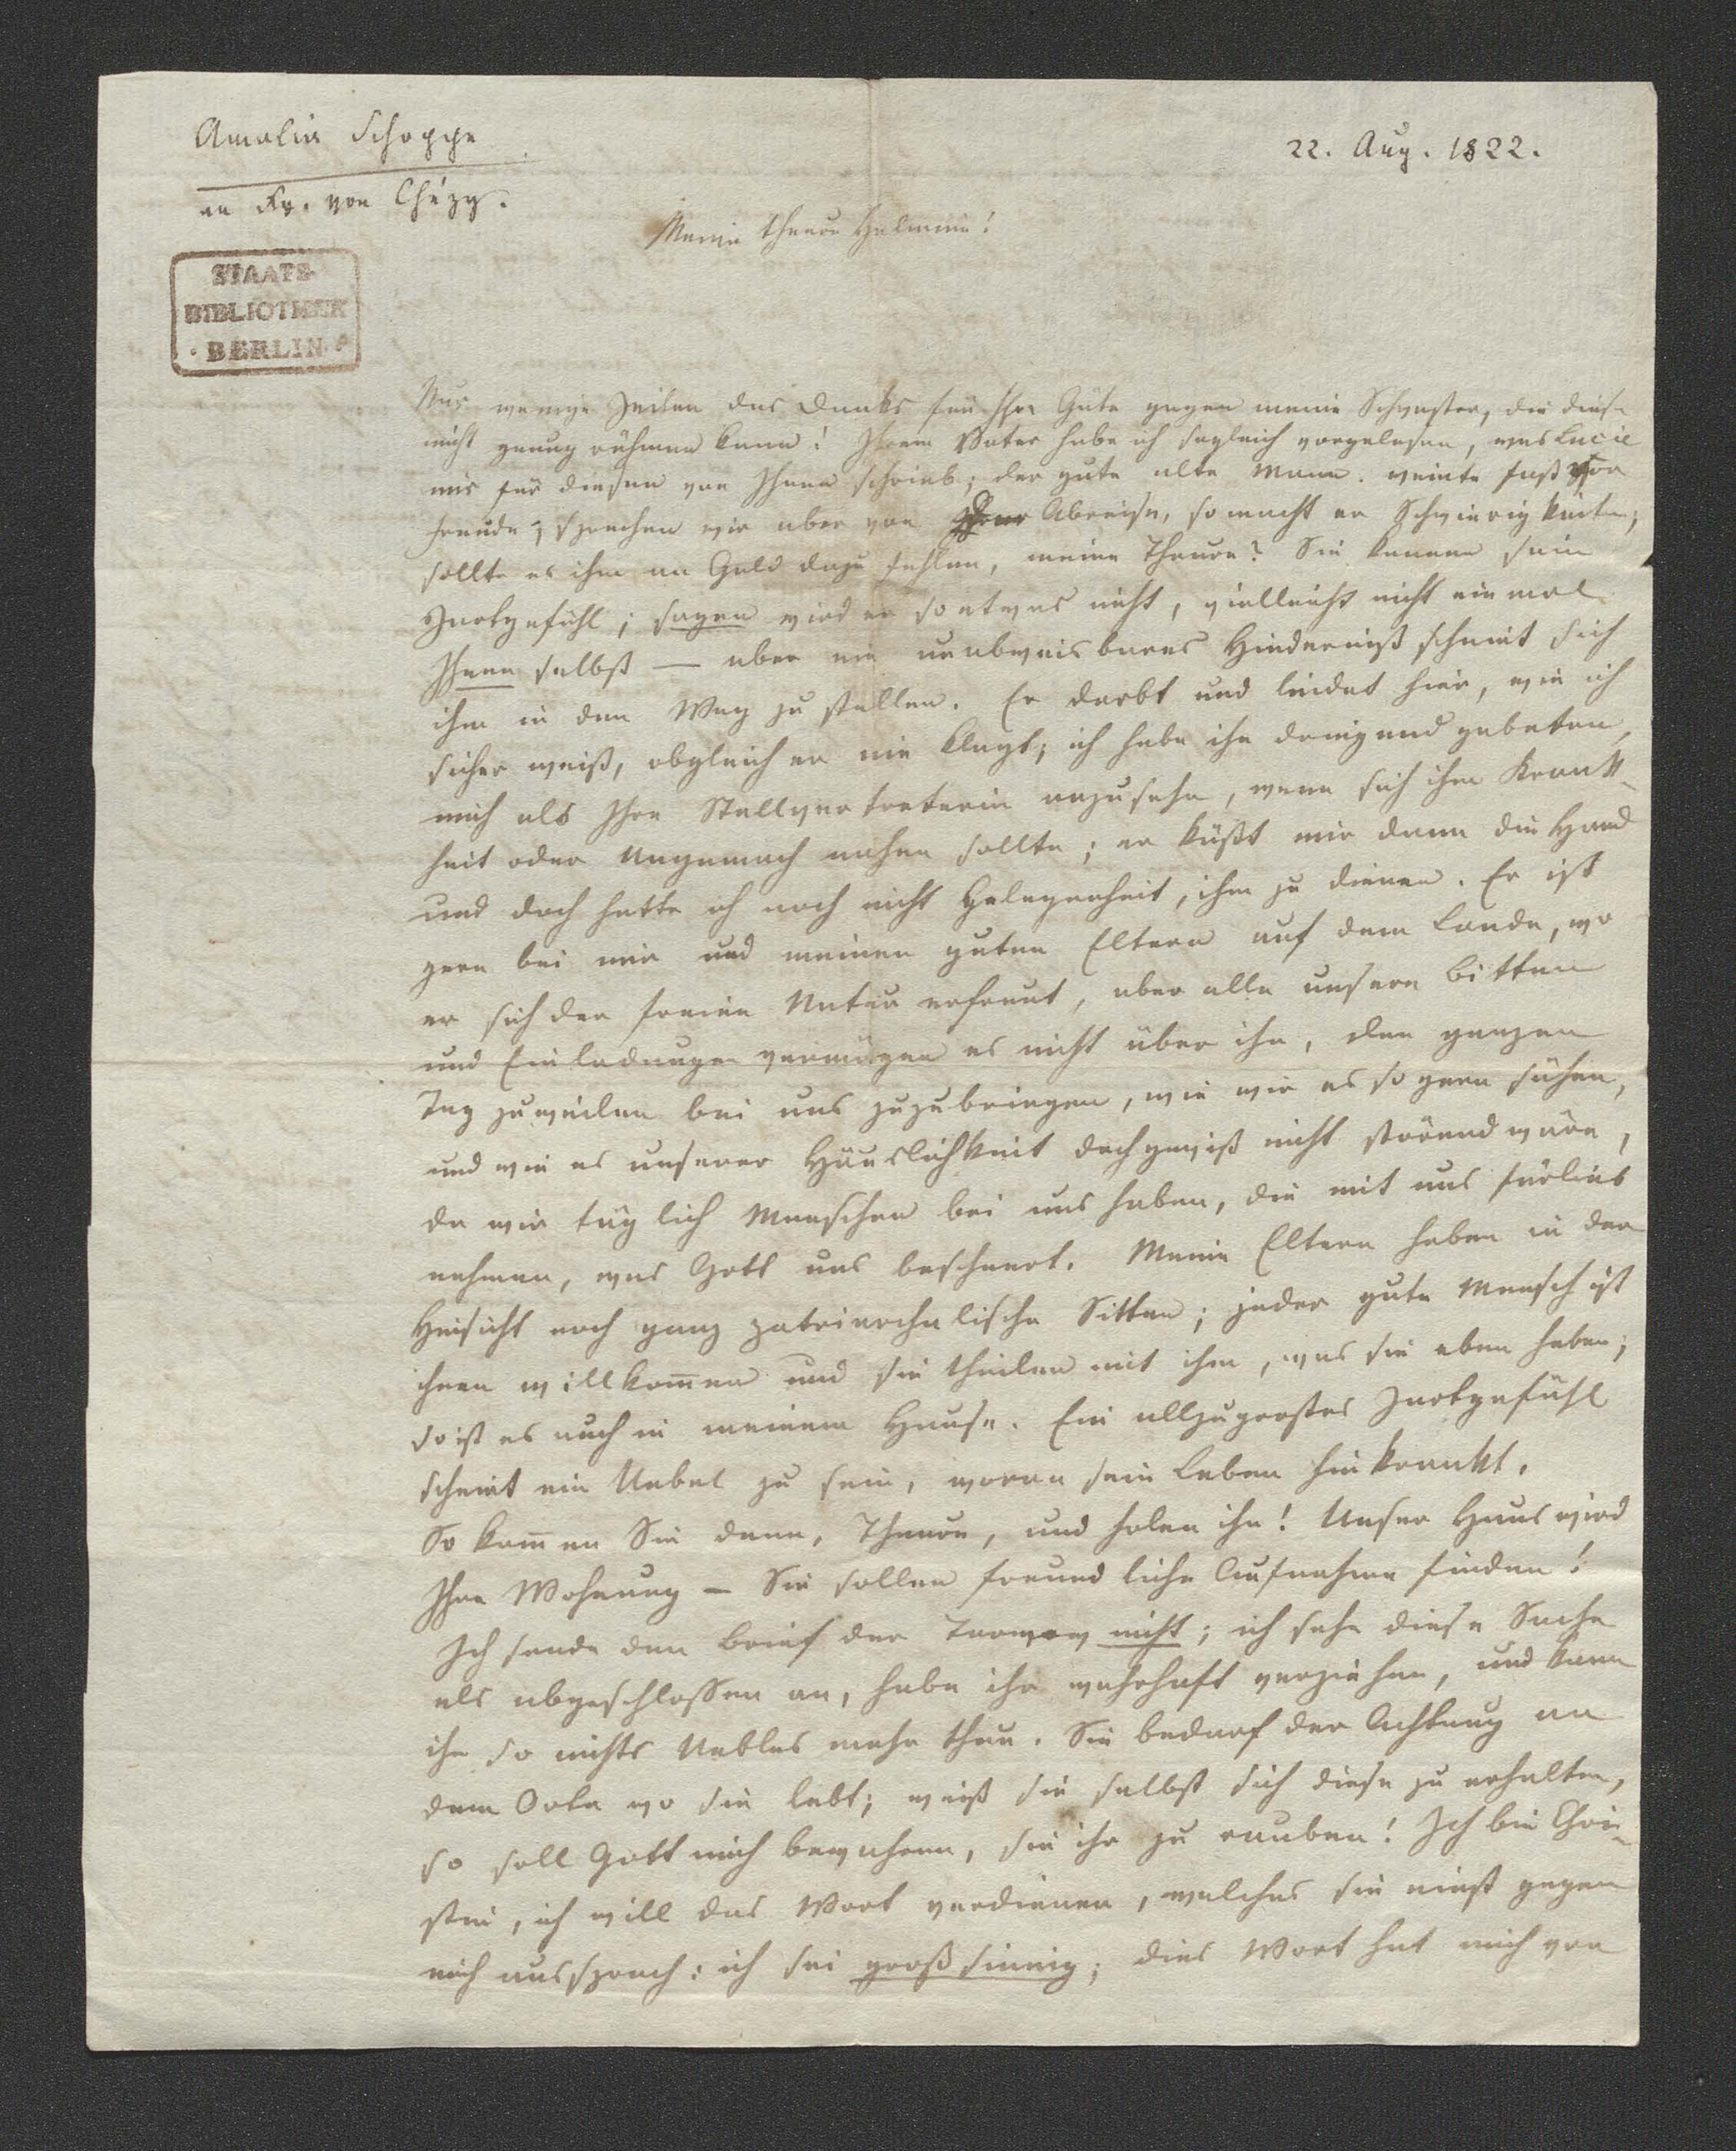 Amalia Schoppe
an Fr. von Chézy.
22. Aug. 1822.
STAATS-
BIBLIOTHEK
· BERLIN ·
Meine theure Helmine!
Nur wenige Zeilen des Danks für Ihre Güte gegen meine Schwester, die diese
nicht genug rühmen kann! Ihrem Vater habe ich sogleich vorgelesen, was Lucie
mir für diesen von Ihnen schrieb; der gute alte Mann weinte fast vor
Freude; sprechen wir aber von Abreise, so macht er Schwierigkeiten;
sollte es ihm an Geld dazu fehlen, meine Theure? Sie kennen sein
Zartgefühl; sagen wird er so etwas nicht, vielleicht nicht einmal
Ihnen selbst — aber ein unabweisbares Hinderniß scheint sich
ihm in den Weg zu stellen. Er darbt und leidet hier, wie ich
sicher weiß, obgleich er nie klagt; ich habe ihn dringend gebeten,
mich als Ihre Stellvertreterin anzusehn, wenn sich ihm Krank-
heit oder Ungemach nahen sollte; er küßt mir dann die Hand
und doch hatte ich noch nicht Gelegenheit, ihm zu dienen. Er ist
gern bei mir und meinen guten Eltern auf dem Lande, wo
er sich der freien Natur erfreut, aber alle unsere Bitten
und Einladungen vermögen es nicht über ihn, den ganzen
Tag zuweilen bei uns zuzubringen, wie wir es so gern sähen,
und wie es unserer Häuslichkeit doch gewiß nicht störend wäre,
da wir täglich Menschen bei uns haben, die mit uns fürlieb
nehmen, was Gott uns bescheert. Meine Eltern haben in der
Hinsicht noch ganz patriarchalische Sitten; jeder gute Mensch ist
ihnen willkom̅en und sie theilen mit ihm, was sie eben haben;
so ist es auch in meinem Hause. Ein allzugroßes Zartgefühl
scheint ein Uebel zu sein, woran sein Leben hinkrankt.
So kom̅en Sie denn, Theure, und holen ihn! Unser Haus wird
Ihre Wohnung — Sie sollen freundliche Aufnahme finden!
Ich sende den Brief der Tarnow nicht; ich sehe diese Sache
als abgeschlossen an, habe ihr wahrhaft verziehen, und kann
ihr so nichts Uebles mehr thun. Sie bedarf der Achtung an
dem Orte wo sie lebt; weiß sie selbst sich diese zu erhalten,
so soll Gott mich bewahren, sie ihr zu rauben! Ich bin Chri-
stin, ich will das Wort verdienen, welches sie einst gegen
mich aussprach: ich sei großsinnig; dies Wort hat mich von